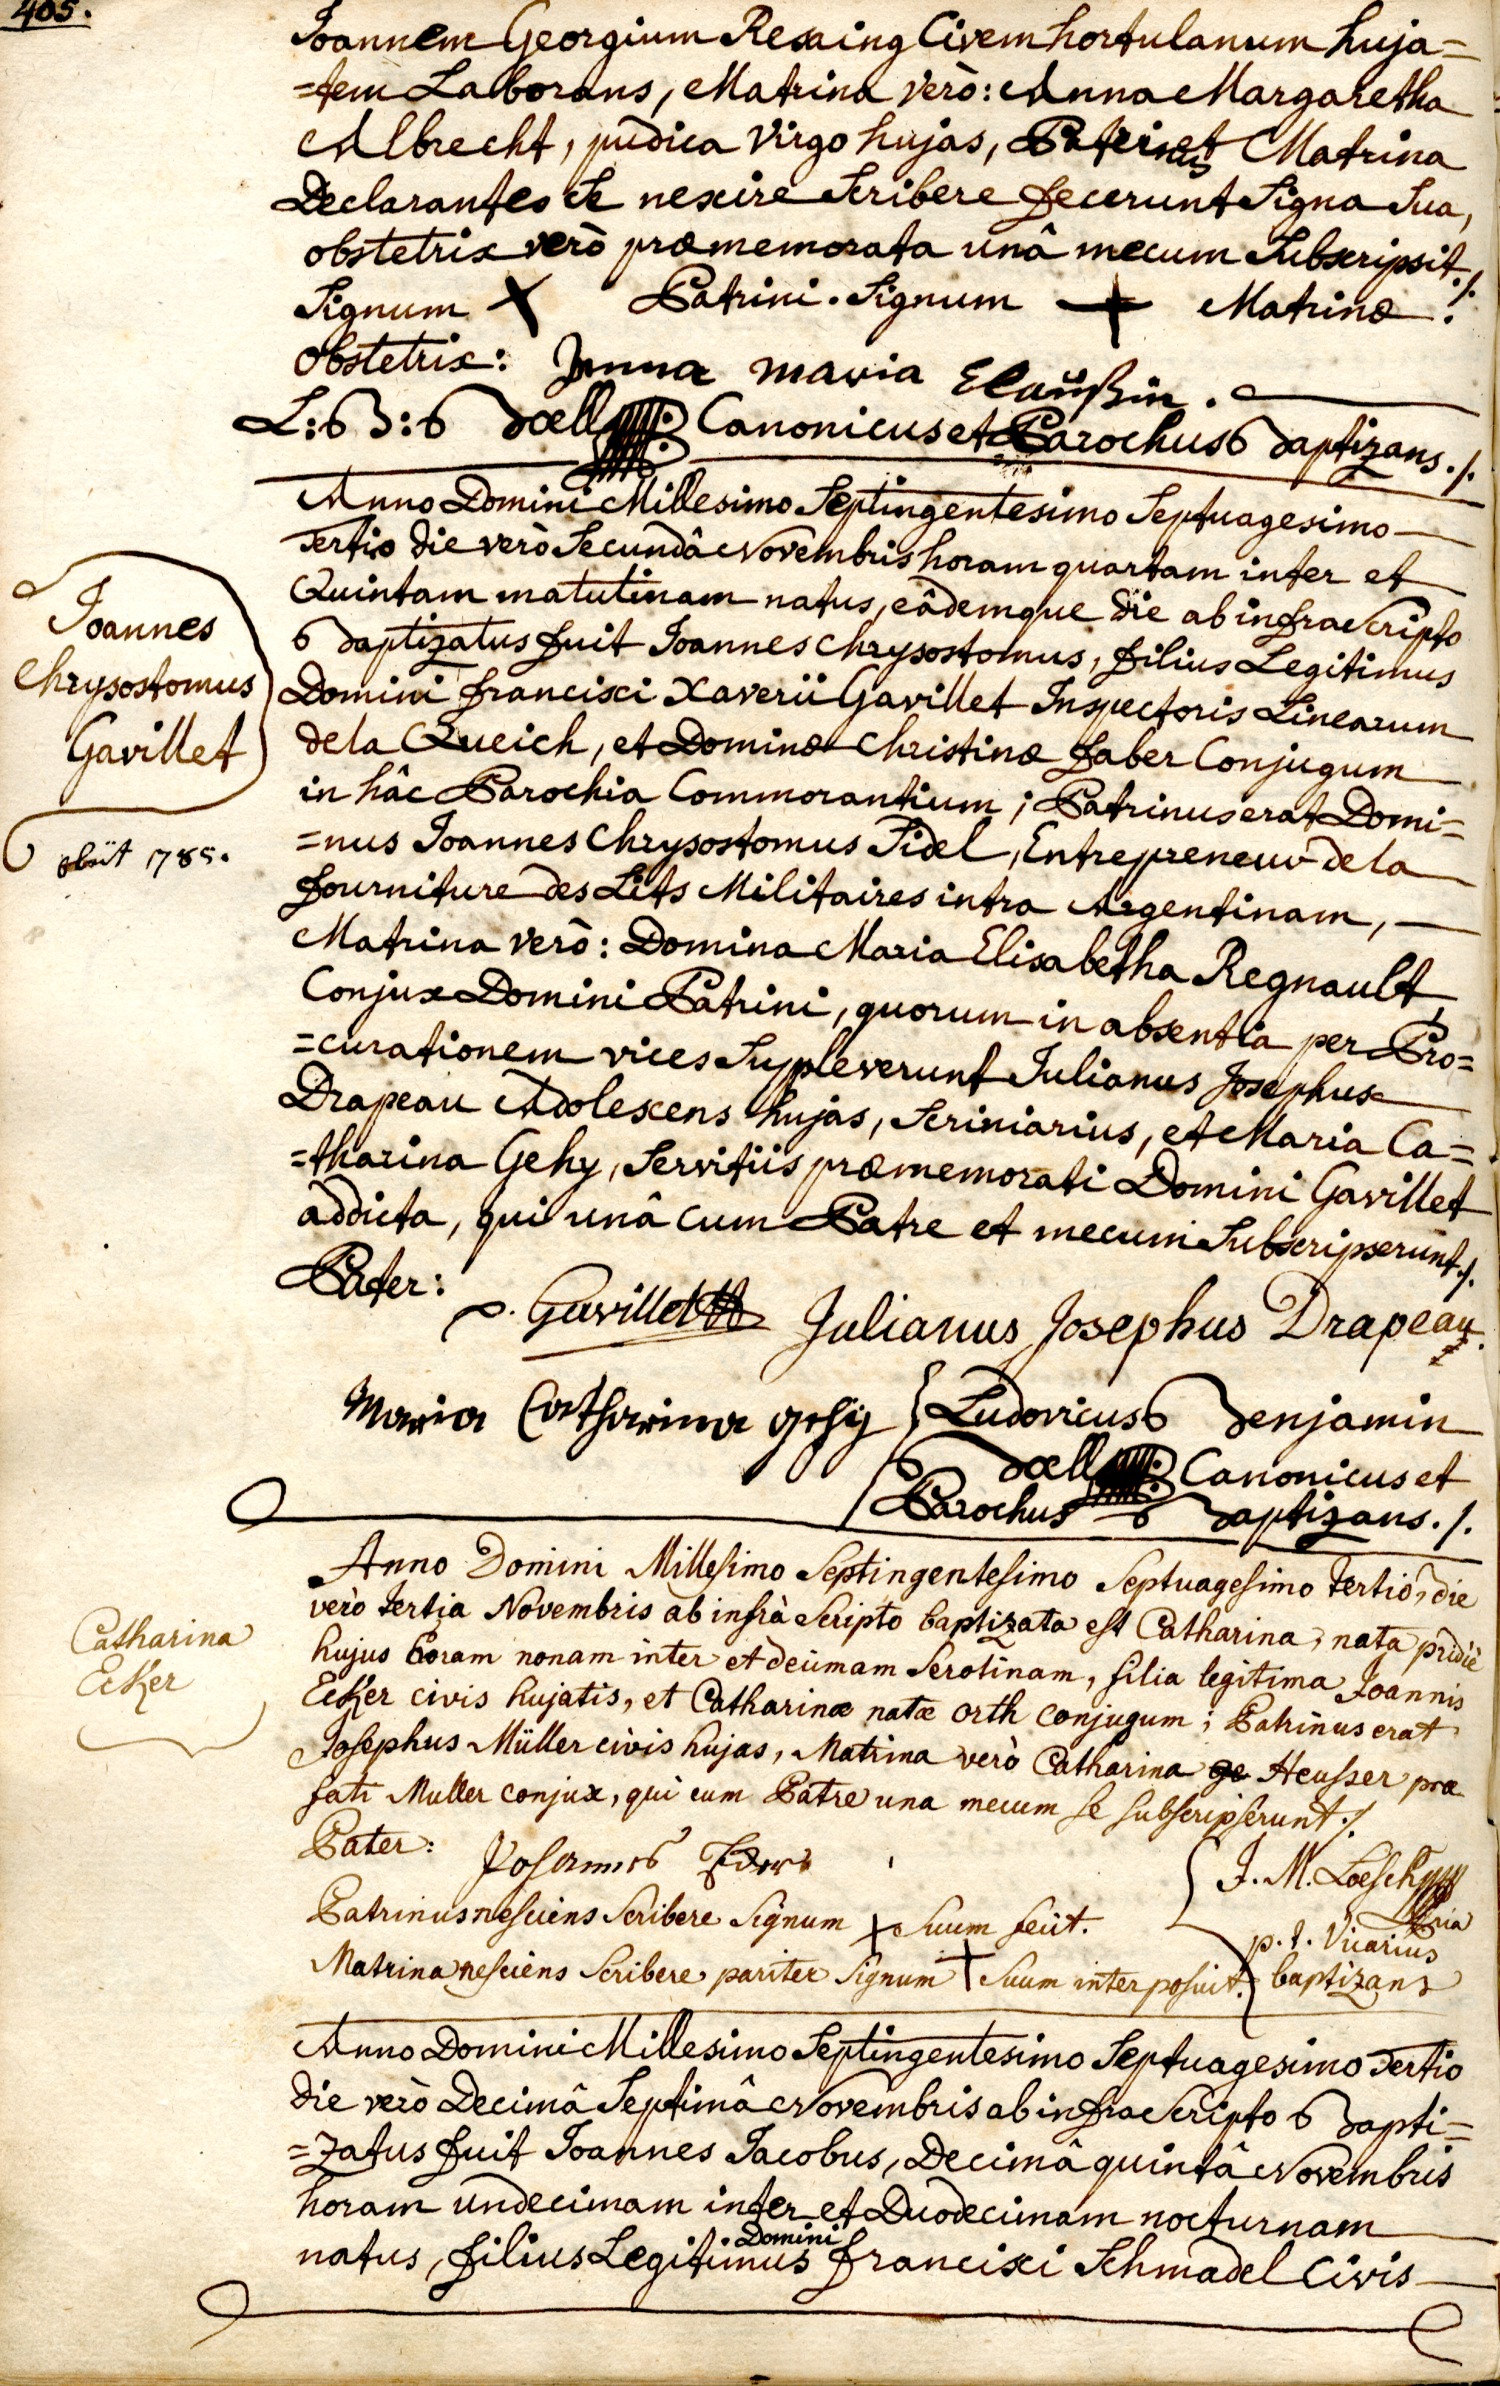 405.
Joannem Georgium Rexaing Civem hortulanum huja=
=tem Laborans, Matrina verò: Anna Margaretha
Albrecht, pudica virgo hujas, Patrinus et Matrina
Declarantes se nescire Scribere fecerunt Signa Sua,
obstetrix verò præmemorata unâ mecum Subscripsit./.
Signum X Patrini. Signum + Matrinæ.
obstetrix: Anna maria Claußin.
L: B: Boell Canonicus et Parochus Baptizans./.
Anno Domini Millesimo Septingentesimo Septuagesimo
Tertio die verò Secundâ Novembris horam quartam inter et
Quintam matutinam natus, eâdemque die ab infra Scripto
Baptizatus fuit Joannes Chrysostomus, filius Legitimus
Domini francisci Xaverii Gavillet Inspectoris Linearum
de la Queich, et Dominæ Christinæ faber Conjugum
in hâc Parochia Commorantium; Patrinus erat Domi=
=nus Joannes Chrysostomus Fidel, Entrepreneur de la
fourniture des Lits Militaires intra Argentinam,
Matrina verò: Domina Maria Elisabetha Regnault,
Conjux Domini Patrini, quorum in absentia per Pro=
=curationem vices Suppleverunt Julianus Josephus
Drapeau Adolescens hujas, Scriniarius, et Maria Ca=
=tharina Gehy, Servitiis præmemorati Domini Gavillet
addicta, qui unâ cum Patre et mecum Subscripserunt./.
Joannes
Chrysostomus
Gavillet
obiit 1785.
Pater: Gavillet Julianus Josephus Drapeau.
Maria Catharina gehy Ludovicus Benjamin
Boell Canonicus et
Parochus Baptizans./.
Anno Domini Millesimo Septingentesimo Septuagesimo tertio, die
verò tertia Novembris ab infrà Scripto baptizata est Catharina, nata pridiè
hujus horam nonam inter et decimam Serotinam, filia legitima Joannis
Ecker civis hujatis, et Catharinæ natæ orth conjugum; Patrinus erat
Josephus Müller civis hujas, Matrina verò Catharina ge Heusser præ
fati Muller conjux, qui cum Patre una mecum se subscripserunt./.
Catharina
Ecker
Pater: Johannes Ecker
J. M. Loesch
p. t. Vicarius
baptizans
Patrinus nesciens Scribere Signum + Suum fecit.
Matrina nesciens Scribere pariter Signum + Suum interposuit.
Anno Domini Millesimo Septingentesimo Septuagesimo Tertio
die verò Decimâ Septimâ Novembris ab infra Scripto Bapti=
=zatus fuit Joannes Jacobus, Decimâ quintâ Novembris
horam undecimam inter et Duodecimam nocturnam
natus, filius Legitimus Domini francisci Schmadel Civis